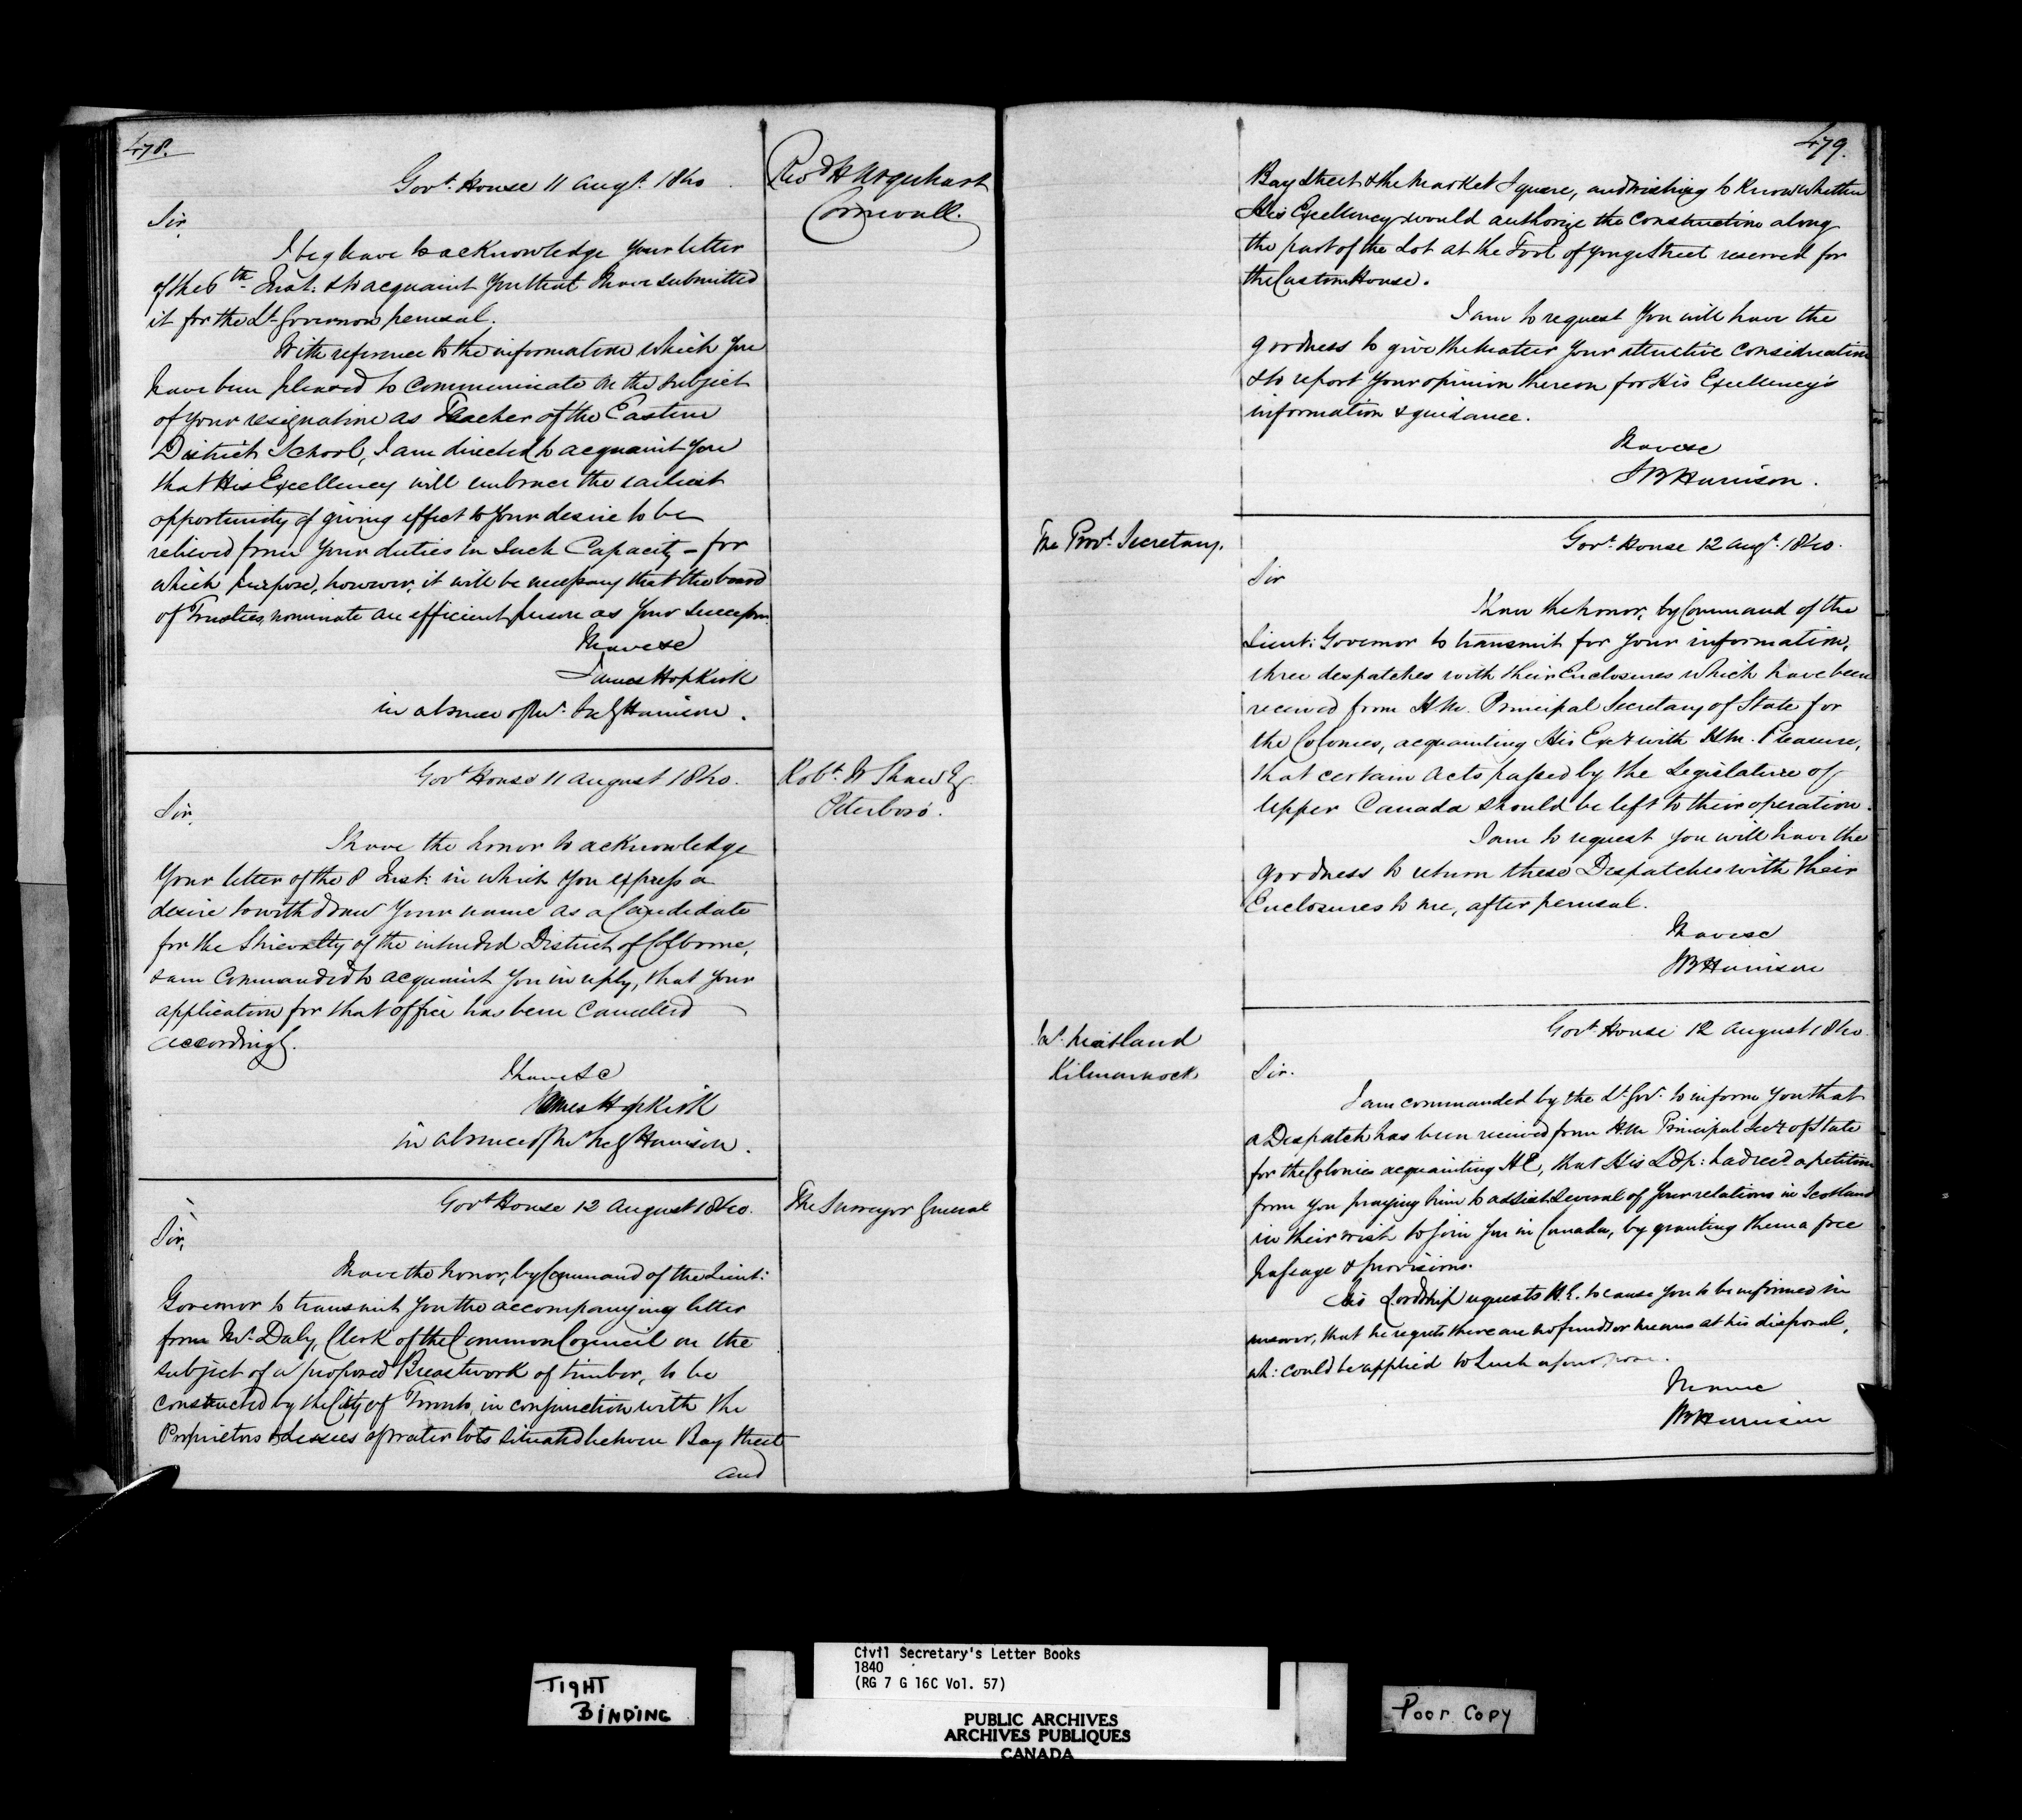 478.
Govt. House 11 Augt. 1840.
Revd H Urquhart
Cornwall.
Sir,
I beg leave to acknowledge Your letter
of the 6th Inst: & to acquaint You that I have submitted
it for the Lt Governors perusal.
With reference to the information which You
have been pleased to communicate on the subject
of your resignation as Teacher of the Eastern
District School, I am directed to acquaint You
that His Excellency will embrace the earliest
opportunity of giving effect to Your desire to be
relieved from Your duties in Such Capacity - for
which purpose, however, it will be necessary that the board
of Trustees, nominate an efficient person as Your Successor.
I have &c
James Hopkirk
in absence of Mr. Secy Harrison.
Govt House 11 August 1840.
Robt. W Shaw Eq
Peterboro'.
Sir,
I have the honor to acknowledge
Your letter of the 8 Inst: in which You express a
desire to withdraw Your name as a Candidate
for the Shrievalty of the intended District of Colborne,
& am Commanded to acquaint You in reply, that Your
application for that office has been Cancelled
accordingly.
I have &c
James Hopkirk
in absence of Mr Secy Harrison.
Govt House 12 August 1840.
The Surveyor General
Sir,
I have the honor, by Command of the Lieut:
Governor to transmit You the accompanying letter
from Mr. Daly, Clerk of the Common Council on the
subject of a proposed Breastwork of timber, to be
constructed by the City of Toronto, in conjunction with the
Proprietors & Lessees of water lots situated between Bay Street
and
479.
Bay Street & the Market Square, and wishing to Know whether
His Excellency would authorize the construction along
the part of the Lot at the Foot of Yonge Street reserved for
the Custom House.
I am to request You will have the
goodness to give the matter Your attentive consideration
& to report Your opinion thereon for His Excellency's
information & guidance.
I have &c
S B Harrison.
The Provl. Secretary.
Govt. House 12 Augt. 1840.
Sir
I have the honor, by Command of the
Lieut: Governor to transmit for Your information,
three despatches with their Enclosures which have been
received from H.M. Principal Secretary of State for
the Colonies, acquainting His Exy with H.M. Pleasure,
that certain Acts passed by the Legislature of
Upper Canada should be left to their operation.
I am to request You will have the
goodness to return these Despatches with their
Enclosures to me, after perusal.
I have &c
SB Harrison
Mr. Maitland
Kilmarnock
Govt House 12 August 1840
Sir.
I am commanded by the Lt Govr. to inform You that
a Despatch has been received from H.M Principal Secy of State
for the Colonies acquainting H E, that His Ldp: had recd. a petition
from You praying him to assist Several of Your relations in Scotland
in their wish to join You in Canada, by granting them a free
passage & provisions.
His Lordship requests H.E. to cause You to be informed in
answer, that he regrets there are no funds or means at his disposal,
wh: could be applied to Such a purpose.
I have &c
SB Harrison
TIGHT
BINDING
Civil Secretary's Letter Books
1840
(RG 7 G 16C Vol. 57)
PUBLIC ARCHIVES
ARCHIVES PUBLIQUES
CANADA
Poor Copy